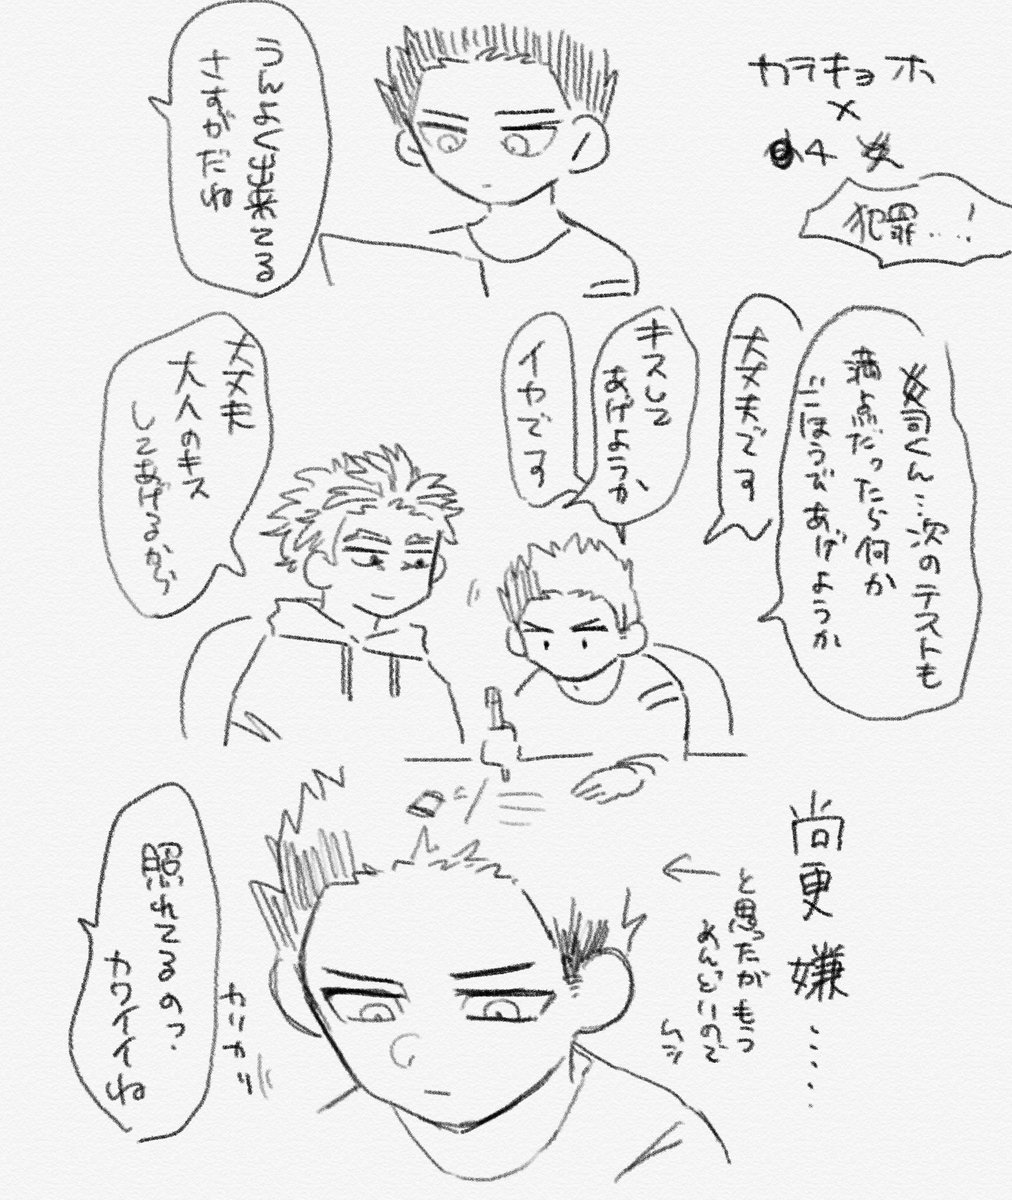 カラキョホ
×
小4
犯罪…!
うんよく出来てる
さすがだね
司くん…次のテストも
満点だったら何か
ごほうびあげようか
大丈夫です
キスして
あげようか
イヤです
大丈夫
大人のキス
してあげるから
尚更嫌....
←
と思ったがもう
めんどいので
ムシ
カリカリ
照れてるのっ
カワイイね